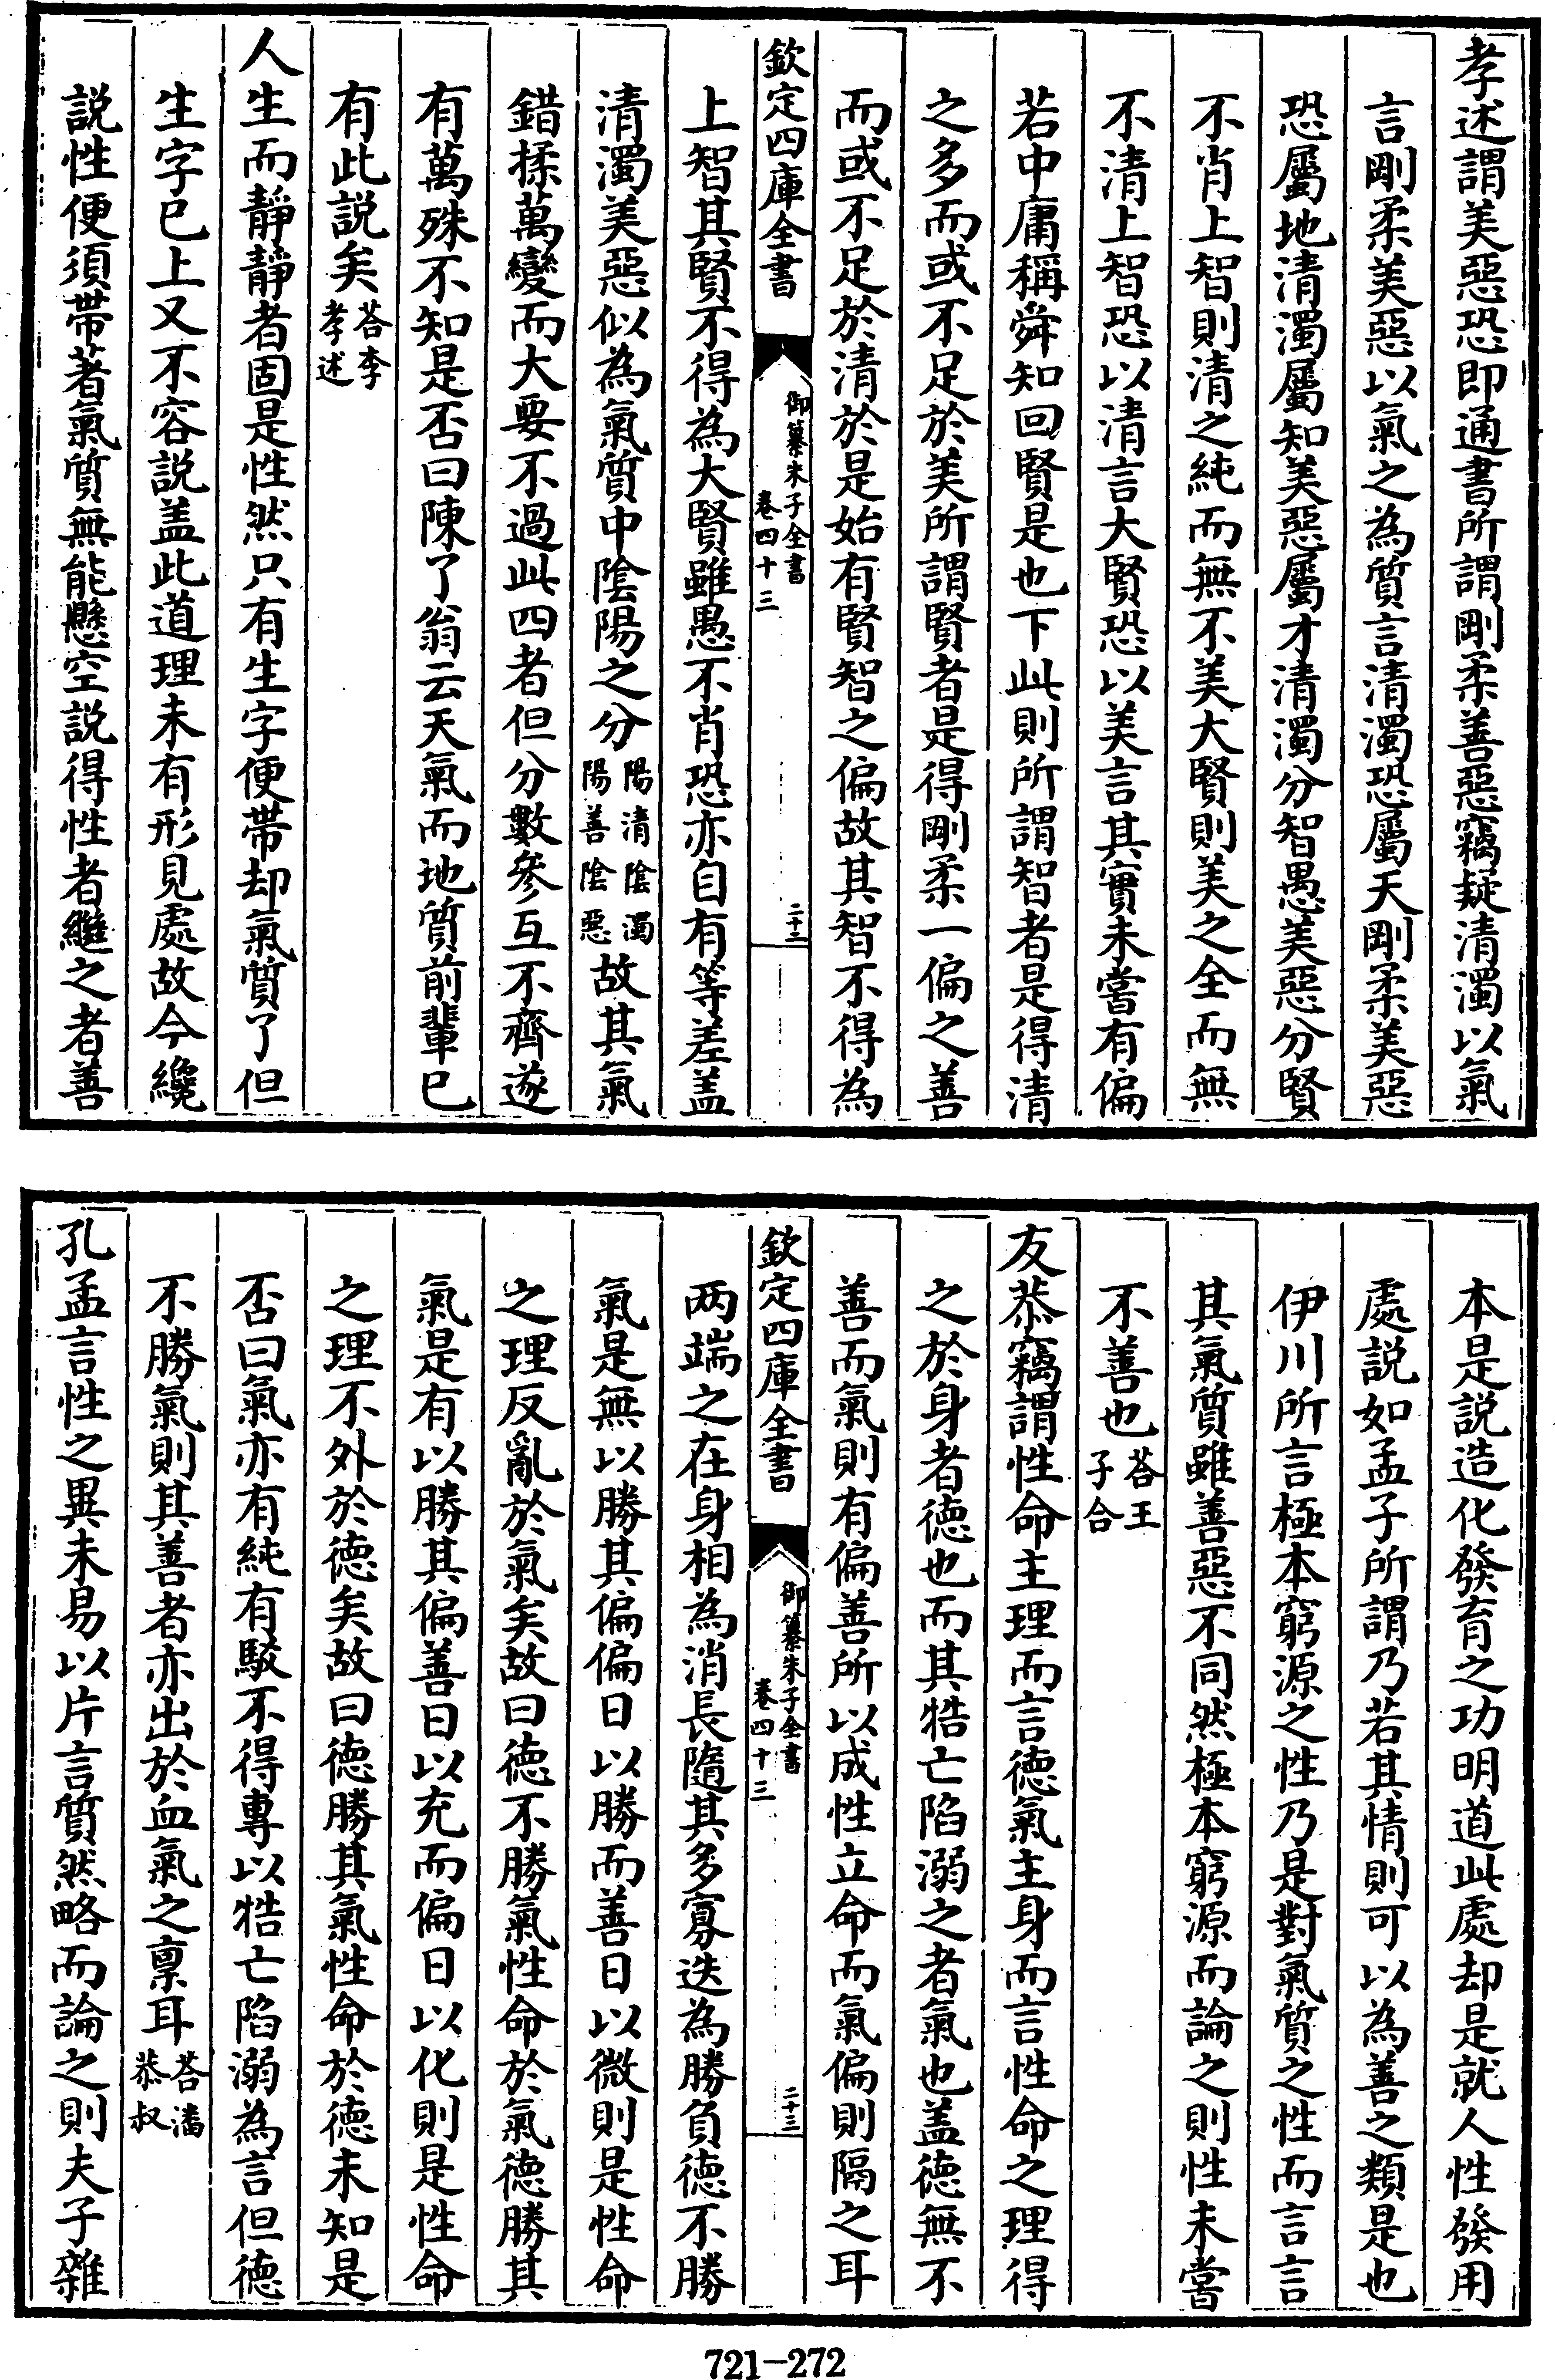 孝述謂美惡恐即通書所謂剛柔善惡竊疑清濁以氣
言剛柔美惡以氣之為質言清濁恐屬天剛柔美惡
恐屬地清濁屬知美惡屬才清濁分智愚美惡分賢
不肖上智則清之純而無不美大賢則美之全而無
不清上智恐以清言大賢恐以美言其實未嘗有偏
若中庸稱舜知回賢是也下此則所謂智者是得清
之多而或不足於美所謂賢者是得剛柔一偏之善
而或不足於清於是始有賢智之偏故其智不得為
欽定四庫全書
御纂朱子全書
卷四十三
二十二
上智其賢不得為大賢雖愚不肖恐亦自有等差盖
清濁美惡似為氣質中陰陽之分陽清陰濁陽善陰惡故其氣
錯揉萬變而大要不過此四者但分數參互不齊遂
有萬殊不知是否曰陳了翁云天氣而地質前輩已
有此説矣荅李孝述
人生而靜靜者固是性然只有生字便帶却氣質了但
生字已上又不容説盖此道理未有形見處故今纔
説性便須帶著氣質無能懸空説得性者繼之者善
本是説造化發育之功明道此處却是就人性發用
處説如孟子所謂乃若其情則可以為善之類是也
伊川所言極本窮源之性乃是對氣質之性而言言
其氣質雖善惡不同然極本窮源而論之則性未嘗
不善也荅王子合
友恭竊謂性命主理而言德氣主身而言性命之理得
之於身者德也而其牿亡陷溺之者氣也盖德無不
善而氣則有偏善所以成性立命而氣偏則隔之耳
欽定四庫全書
御纂朱子全書
卷四十三
二十三
两端之在身相為消長隨其多寡迭為勝負德不勝
氣是無以勝其偏偏日以勝而善日以微則是性命
之理反亂於氣矣故曰德不勝氣性命於氣德勝其
氣是有以勝其偏善日以充而偏日以化則是性命
之理不外於德矣故曰德勝其氣性命於德未知是
否曰氣亦有純有駁不得專以牿亡陷溺為言但德
不勝氣則其善者亦出於血氣之稟耳荅潘恭叔
孔孟言性之異未易以片言質然略而論之則夫子雜
721-272